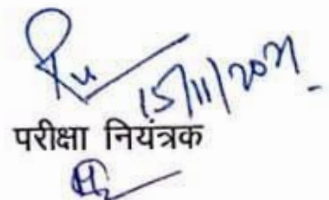 15/11/2021
परीक्षा नियंत्रक